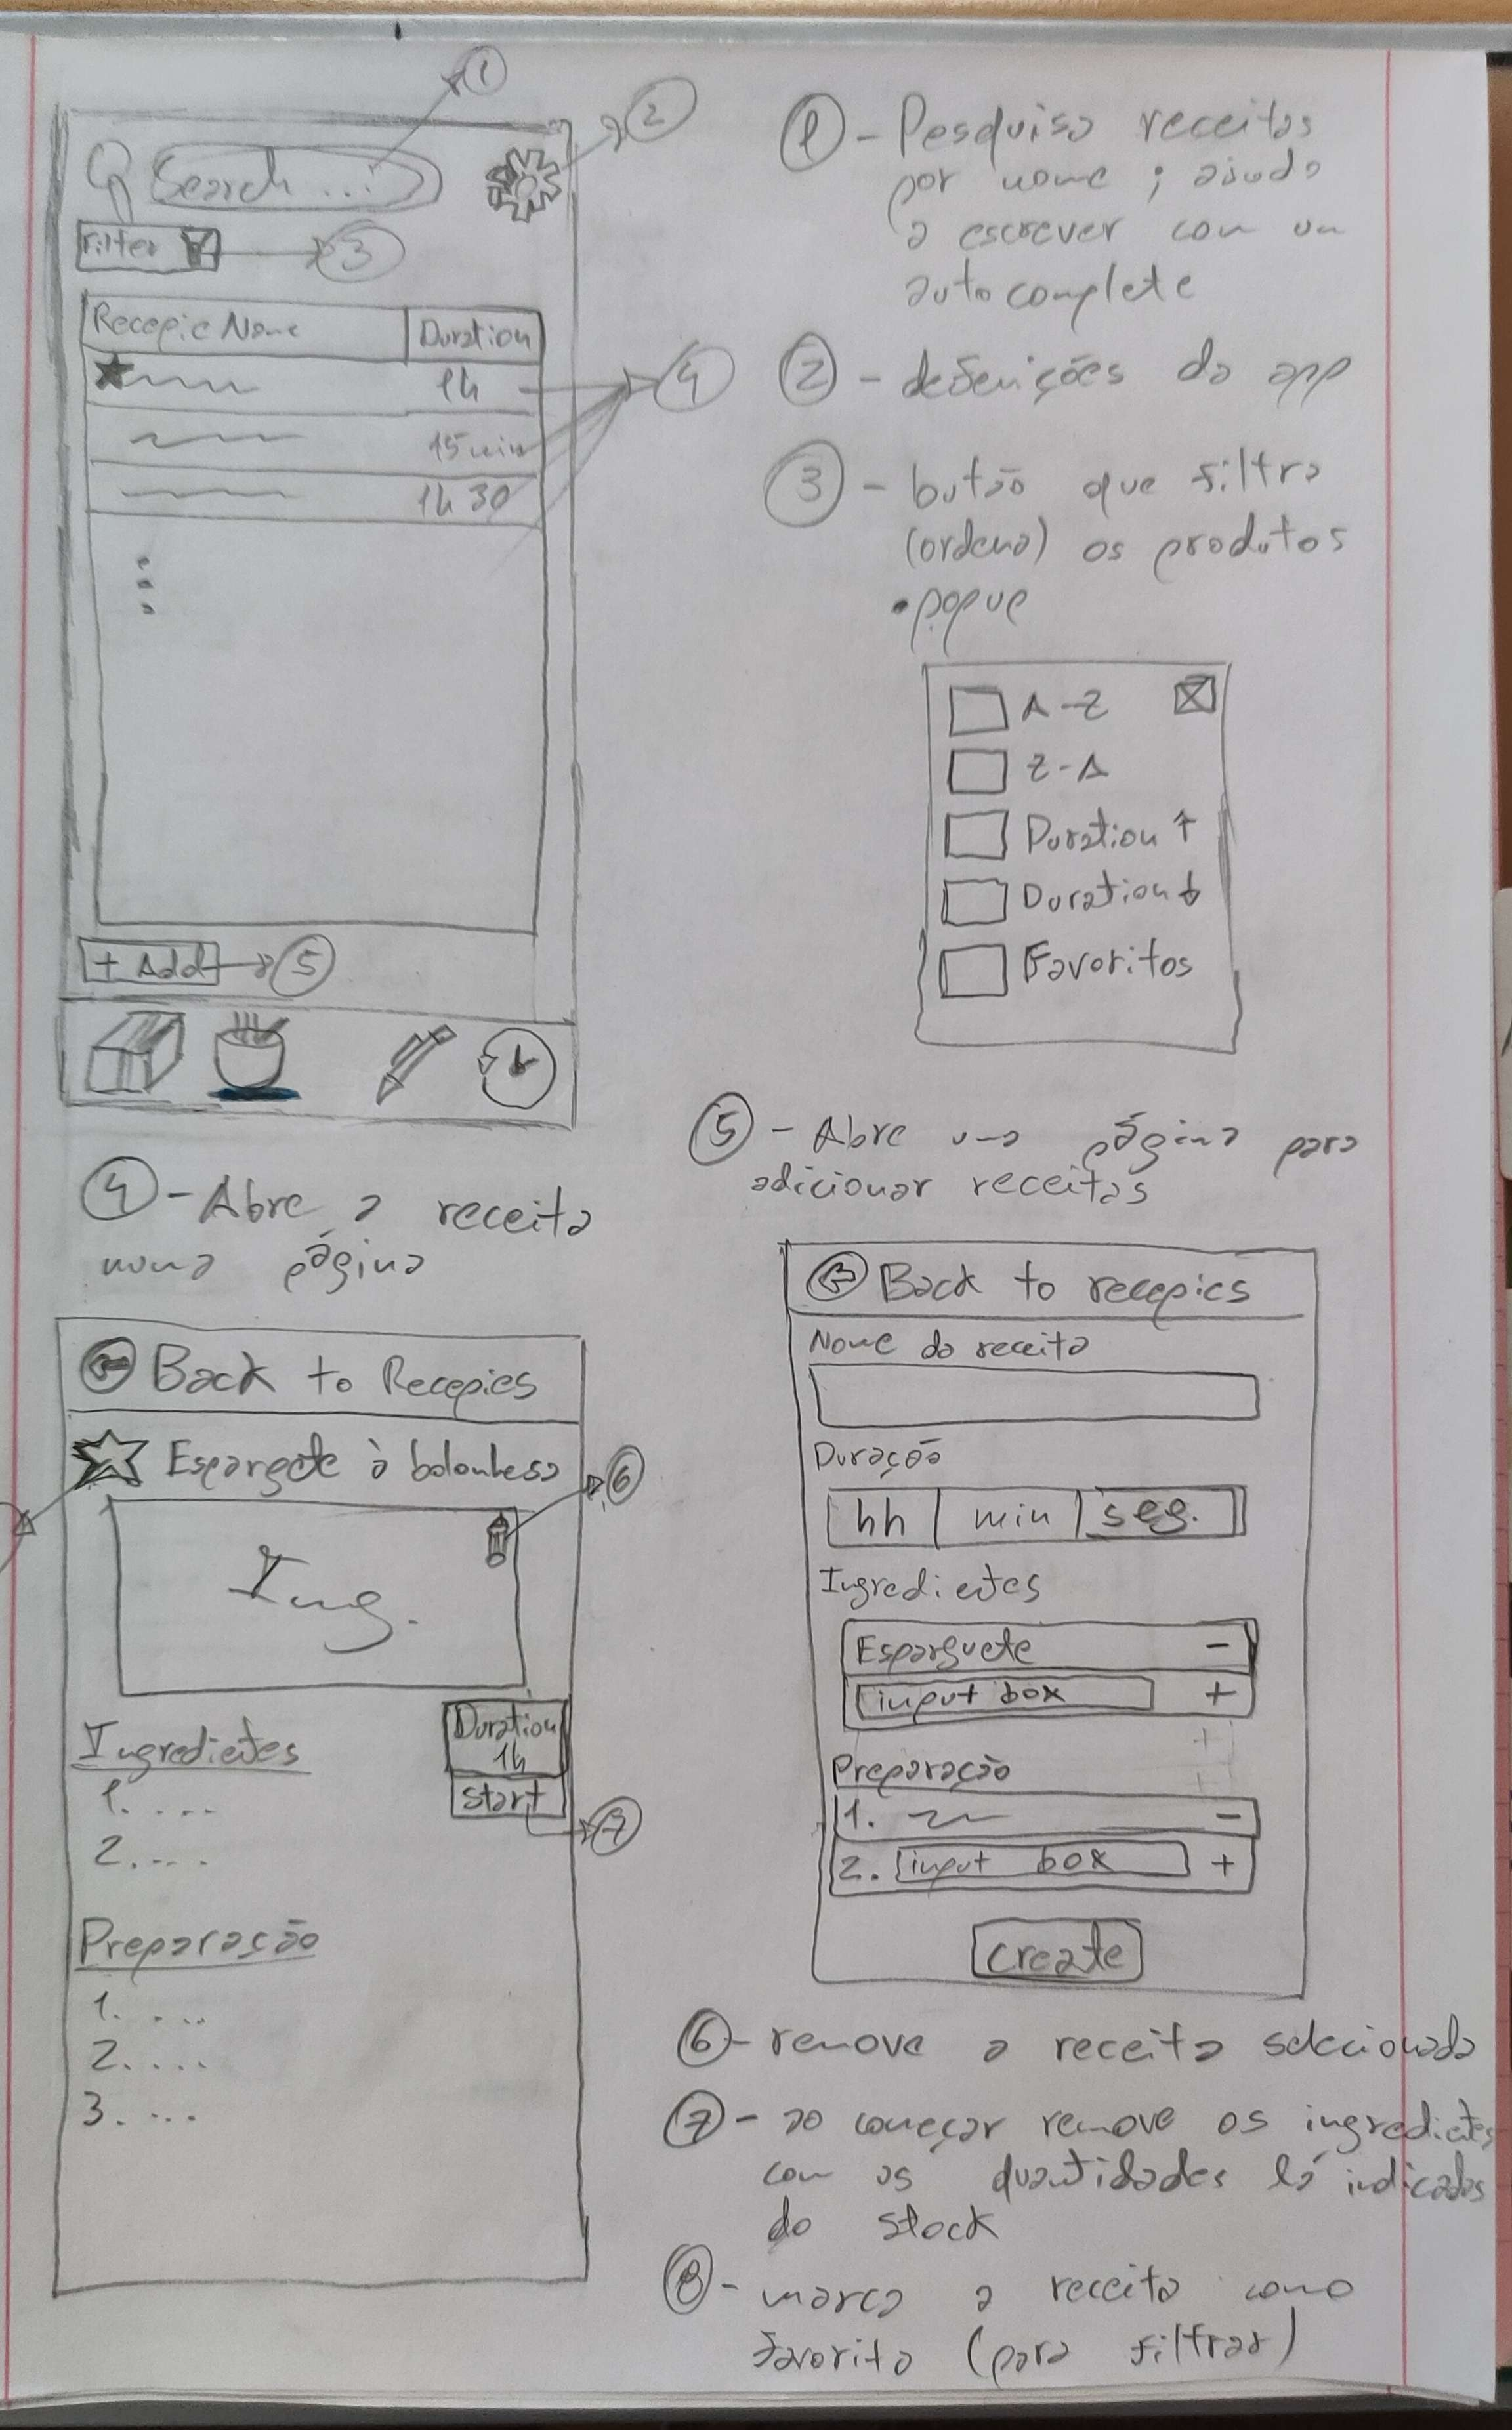 1
Search ...
2
Filter
3
Recepie Name
Duration
1h
4
15min
1h 30
+ Add
5
1 - Pesquisa receitas
por nome ; ajuda
a escrever com um
autocomplete
2 - definições da app
3 - butão que filtra
(ordena) os produtos
• popup
A-Z
Z-A
Duration ↑
Duration ↓
Favoritos
4 - Abre a receita
numa página
Back to Recepies
Esparguete à bolonhesa
6
Img.
Duration
1h
Start
7
Ingredientes
1. ....
2. ....
Preparação
1. ....
2. ....
3. ....
5 - Abre uma página para
adicionar receitas
Back to recepies
Nome da receita
Duração
hh min seg.
Ingredientes
Esparguete -
input box +
Preparação
1. -
2. input box +
Create
6 - remove a receita selecionada
7 - ao começar remove os ingredientes
com as quantidades lá indicadas
do stock
8 - marca a receita como
favorita (para filtrar)